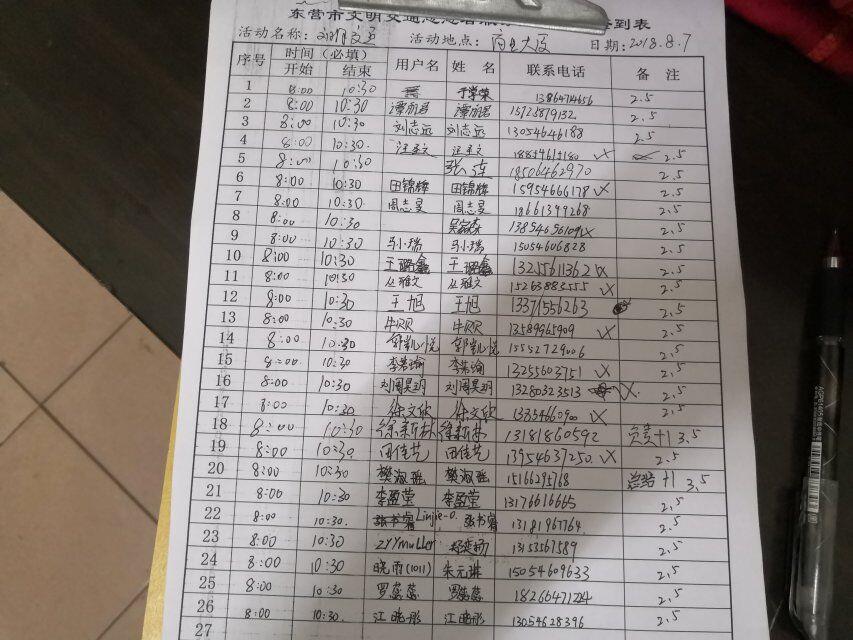 东营市文明交通志愿者 到表
活动名称: 文明交通 活动地点: 大厦 日期: 2018.8.7
序号 时间(必填) 用户名 姓 名 联系电话 备 注
开始 结束
1 8:00 10:30 于学荣 13864714656 2.5
2 8:00 10:30 谭丽君 谭丽君 15725879132 2.5
3 8:00 10:30 刘志远 刘志远 13054646188 2.5
4 8:00 10:30. 汪圣文 汪圣文 2.5
5 8:00 10:30 张连 18506462970 2.5
6 8:00 10:30 田锦峰 田锦峰 15954666178 2.5
7 8:00 10:30 周志昊 周志昊 18661399268 2.5
8 8:00 10:30 13854656109 2.5
9 8:00 10:30 马小瑞 马小瑞 13054606828 2.5
10 8:00 10:30 王璐鑫 王璐鑫 13255611362 2.5
11 8:00 10:30 丛雅文 丛雅文 15263883555 2.5
12 8:00 10:30 王旭 王旭 13371556263 2.5
13 8:00 10:30 牛贝贝 牛贝贝 13589965909 2.5
14 8:00 10:30 郭凯悦 郭凯悦 15552729006 2.5
15 8:00 10:30 李若瑜 李若瑜 13255603751 2.5
16 8:00 10:30 刘周昊玥 刘周昊玥 13280323513 2.5
17 8:00 10:30 徐文欣 徐文欣 13854660900 2.5
18 8:00 10:30 徐新林 徐新林 13181860592 负责+1 3.5
19 8:00 10:30 田佳艺 田佳艺 13954637250. 2.5
20 8:00 10:30 樊淑瑶 樊淑瑶 15166295768 总结+1 3.5
21 8:00 10:30 李盈莹 李盈莹 13176616665 2.5
22 8:00 10:30. Linjie-0. 张书睿 13181967764. 2.5
23 8:00 10:30. ZYYmuller 13153567589 2.5
24 8:00 10:30 晓雨(1011) 朱元琳 15054609633 2.5
25 8:00 10:30 罗蕊蕊 罗蕊蕊 18266471224 2.5
26 8:00 10:30. 江晓彤 江晓彤 13054628396 2.5
27